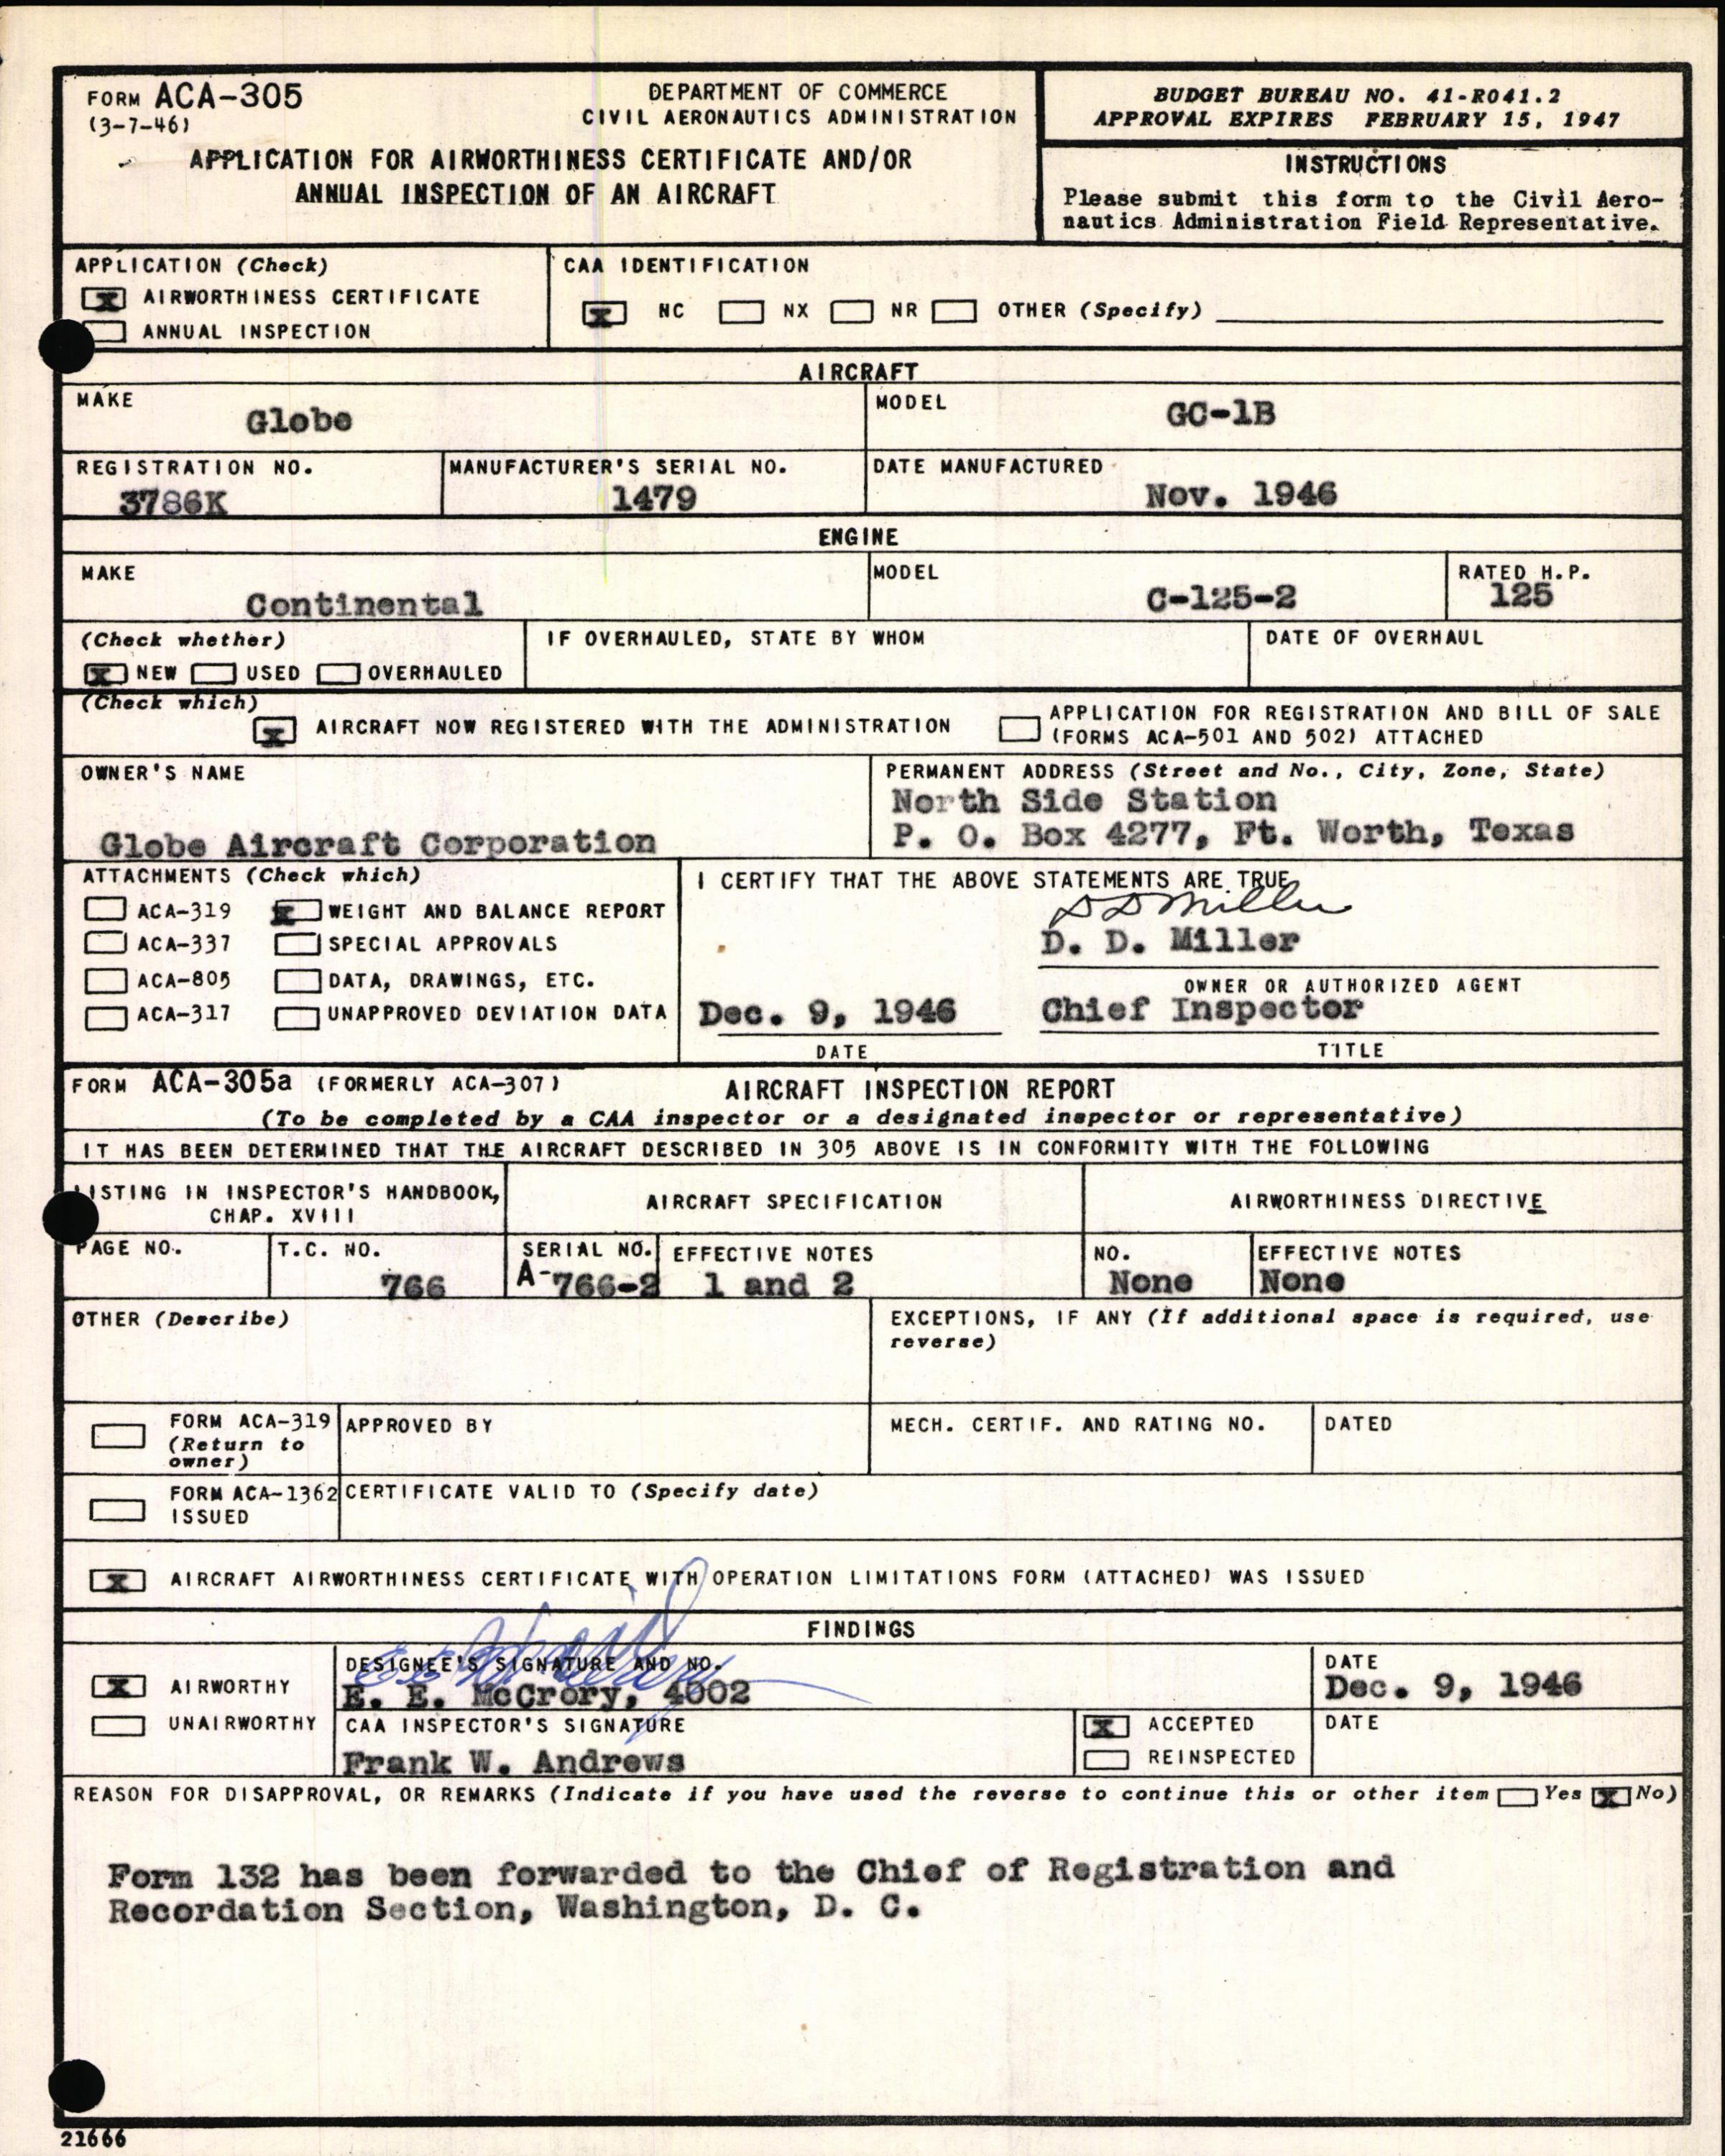 FORM ACA-305
(3-7-46)
DEPARTMENT OF COMMERCE
CIVIL AERONAUTICS ADMINISTRATION
APPLICATION FOR AIRWORTHINESS CERTIFICATE AND/OR
ANNUAL INSPECTION OF AN AIRCRAFT
BUDGET BUREAU NO. 41-R041.2
APPROVAL EXPIRES FEBRUARY 15, 1947
INSTRUCTIONS
Please submit this form to the Civil Aero-
nautics Administration Field Representative.
APPLICATION (Check)
X AIRWORTHINESS CERTIFICATE
ANNUAL INSPECTION
CAA IDENTIFICATION
X NC NX NR OTHER (Specify)
AIRCRAFT
MAKE
Globe
MODEL
GC-1B
REGISTRATION NO.
3786K
MANUFACTURER'S SERIAL NO.
1479
DATE MANUFACTURED
Nov. 1946
ENGINE
MAKE
Continental
MODEL
C-125-2
RATED H.P.
125
(Check whether)
X NEW USED OVERHAULED
IF OVERHAULED, STATE BY WHOM
DATE OF OVERHAUL
(Check which)
X AIRCRAFT NOW REGISTERED WITH THE ADMINISTRATION
APPLICATION FOR REGISTRATION AND BILL OF SALE
(FORMS ACA-501 AND 502) ATTACHED
OWNER'S NAME
Globe Aircraft Corporation
PERMANENT ADDRESS (Street and No., City, Zone, State)
North Side Station
P. O. Box 4277, Ft. Worth, Texas
ATTACHMENTS (Check which)
ACA-319 X WEIGHT AND BALANCE REPORT
ACA-337 SPECIAL APPROVALS
ACA-805 DATA, DRAWINGS, ETC.
ACA-317 UNAPPROVED DEVIATION DATA
I CERTIFY THAT THE ABOVE STATEMENTS ARE TRUE
D D Miller
D. D. Miller
OWNER OR AUTHORIZED AGENT
Dec. 9, 1946 Chief Inspector
DATE TITLE
FORM ACA-305a (FORMERLY ACA-307) AIRCRAFT INSPECTION REPORT
(To be completed by a CAA inspector or a designated inspector or representative)
IT HAS BEEN DETERMINED THAT THE AIRCRAFT DESCRIBED IN 305 ABOVE IS IN CONFORMITY WITH THE FOLLOWING
LISTING IN INSPECTOR'S HANDBOOK,
CHAP. XVIII
AIRCRAFT SPECIFICATION
AIRWORTHINESS DIRECTIVE
PAGE NO.
T.C. NO.
766
SERIAL NO.
A-766-2
EFFECTIVE NOTES
1 and 2
NO.
None
EFFECTIVE NOTES
None
OTHER (Describe)
EXCEPTIONS, IF ANY (If additional space is required, use
reverse)
FORM ACA-319
(Return to
owner)
APPROVED BY
MECH. CERTIF. AND RATING NO.
DATED
FORM ACA-1362
ISSUED
CERTIFICATE VALID TO (Specify date)
X AIRCRAFT AIRWORTHINESS CERTIFICATE WITH OPERATION LIMITATIONS FORM (ATTACHED) WAS ISSUED
FINDINGS
X AIRWORTHY
UNAIRWORTHY
DESIGNEE'S SIGNATURE AND NO.
E. E. McCrory, 4002
DATE
Dec. 9, 1946
CAA INSPECTOR'S SIGNATURE
Frank W. Andrews
X ACCEPTED
REINSPECTED
DATE
REASON FOR DISAPPROVAL, OR REMARKS (Indicate if you have used the reverse to continue this or other item Yes X No)
Form 132 has been forwarded to the Chief of Registration and
Recordation Section, Washington, D. C.
21666